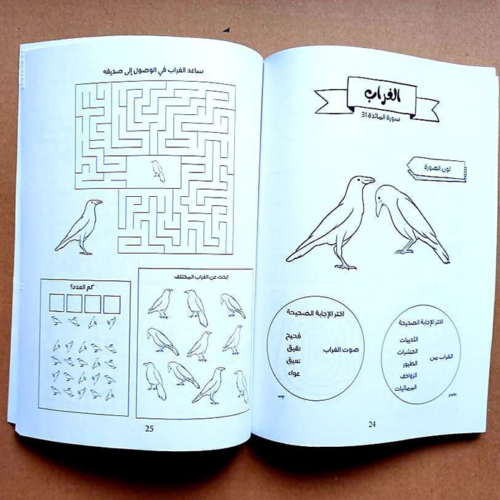 الغراب
سورة المائدة 31
لون الصورة
اختر الإجابة الصحيحة
الغراب من
الثدييات
الحشرات
الطيور
الزواحف
البرمائيات
اختر الإجابة الصحيحة
صوت الغراب
فحيح
نقيق
نعيق
عواء
24
ساعد الغراب في الوصول إلى صديقه
ابحث عن الغراب المختلف
كم العدد؟
25